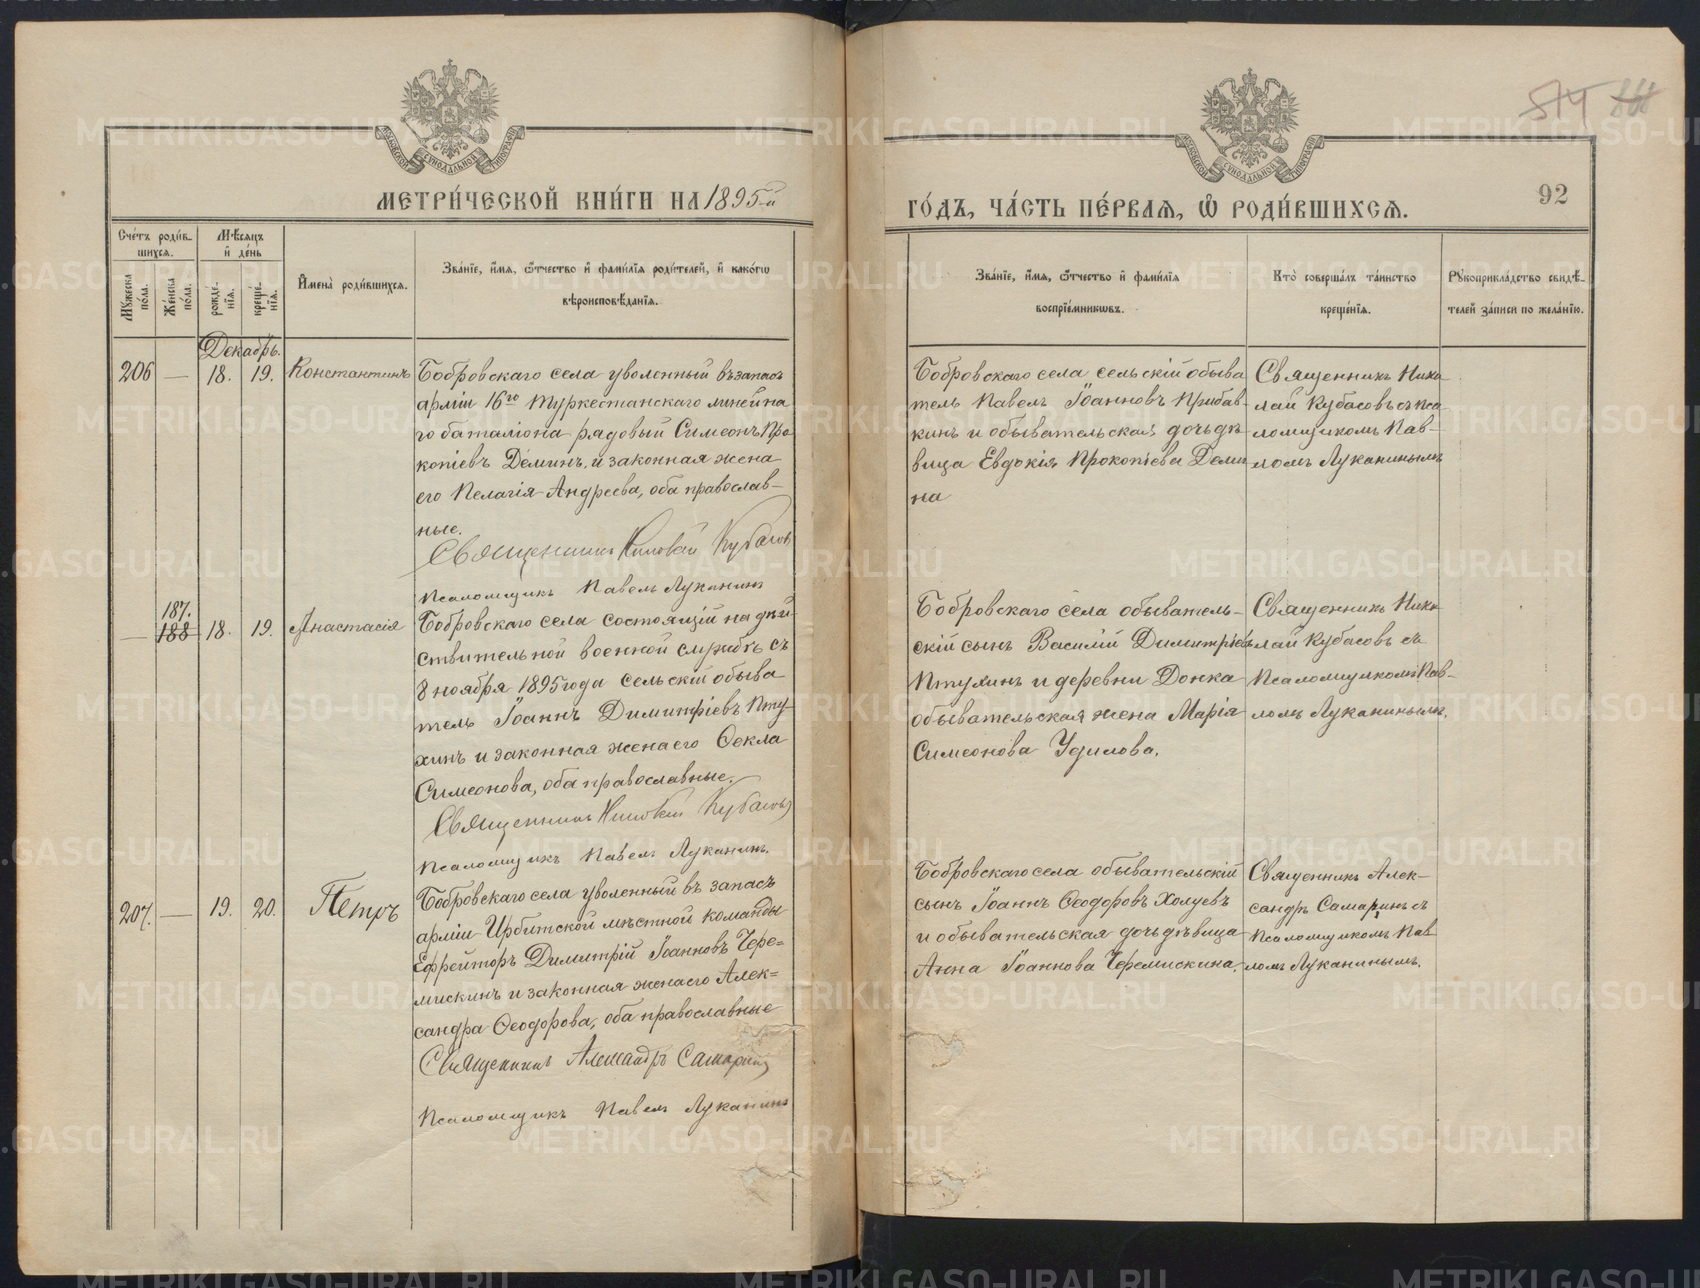 МЕТРИ́ЧЕСКОЙ КНИ́ГИ НА 1895-й
ГО́ДЪ, ЧА́СТЬ ПЕ́РВАЯ, Ѿ РОДИ́ВШИХСЯ.
514
92
МОСКОВСКОЙ СУНОДАЛЬНОЙ ТИПОГРАФІИ
МОСКОВСКОЙ СУНОДАЛЬНОЙ ТИПОГРАФІИ
Сче́тъ роди́вшихся.
Му́жеска по́ла.
Же́нска по́ла.
Мѣ́сяцъ и҆ де́нь
рожде́нїя.
креще́нїя.
И҆мена̀ роди́вшихся.
Зва́нїе, и҆́мя, ѻ҆́тчество и҆ фами́лїя роди́телей, и҆ како́гѡ
вѣроисповѣ́данїя.
Зва́нїе, и҆́мя, ѻ҆́тчество и҆ фами́лїя
воспрїе́мникѡвъ.
Кто̀ соверша́лъ та́инство
креще́нїя.
Рꙋкоприкла́дство свидѣ́-
телей за́писи по жела́нїю.
Декабрь.
206 — 18. 19. Константинъ
Бобровскаго села уволенный въ запасъ
арміи 16го Туркестанскаго линейна
го баталіона рядовый Симеонъ Про
копіевъ Деминъ, и законная жена
его Пелагія Андреева, оба православ-
ные.
Священникъ Николай Кубасовъ
Псаломщикъ Павелъ Луканинъ
Бобровскаго села сельскій обыва
тель Павелъ Іоанновъ Прибав-
кинъ и обывательская дочь дѣ
вица Евдокія Прокопіева Деми
на
Священникъ Нико
лай Кубасовъ съ пса
ломщикомъ Пав-
ломъ Луканинымъ
— 187. 188 18. 19. Анастасія
Бобровскаго села состоящій на дѣй-
ствительной военной службѣ съ
8 ноября 1895 года сельскій обыва
тель Іоаннъ Димитріевъ Пту-
хинъ и законная жена его Ѳекла
Симеонова, оба православные.
Священникъ Николай Кубасовъ
Псаломщикъ Павелъ Луканинъ.
Бобровскаго села обыватель-
скій сынъ Василій Димитріевъ
Птухинъ и деревни Донка
обывательская жена Марія
Симеонова Удилова.
Священникъ Нико
лай Кубасовъ съ
Псаломщикомъ Пав-
ломъ Луканинымъ.
207. — 19. 20. Петръ
Бобровскаго села уволенный въ запасъ
арміи Ирбитской мѣстной команды
Ефрейторъ Димитрій Іоанновъ Чере=
мискинъ и законная жена его Алек=
сандра Ѳеодорова, оба православные
Священникъ Александръ Самаринъ
Псаломщикъ Павелъ Луканинъ
Бобровскаго села обывательскій
сынъ Іоаннъ Ѳеодоровъ Холуевъ
и обывательская дочь дѣвица
Анна Іоаннова Черемискина.
Священникъ Алек-
сандръ Самаринъ съ
Псаломщикомъ Пав
ломъ Луканинымъ.
METRIKI.GASO-URAL.RU